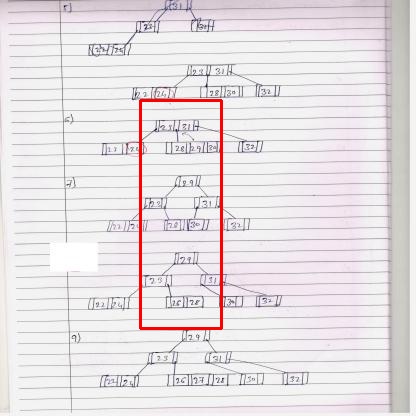 5)
|31|
|23| |30|
|22|25|
|23|31|
|22|24| |28|30| |32|
6)
|23|31|
|22|24| |28|29|30| |32|
7)
|29|
|23| |31|
|22|24| |28| |30| |32|
|29|
|23| |31|
|22|24| |26|28| |30| |32|
9)
|29|
|23| |31|
|22|24| |26|27|28| |30| |32|